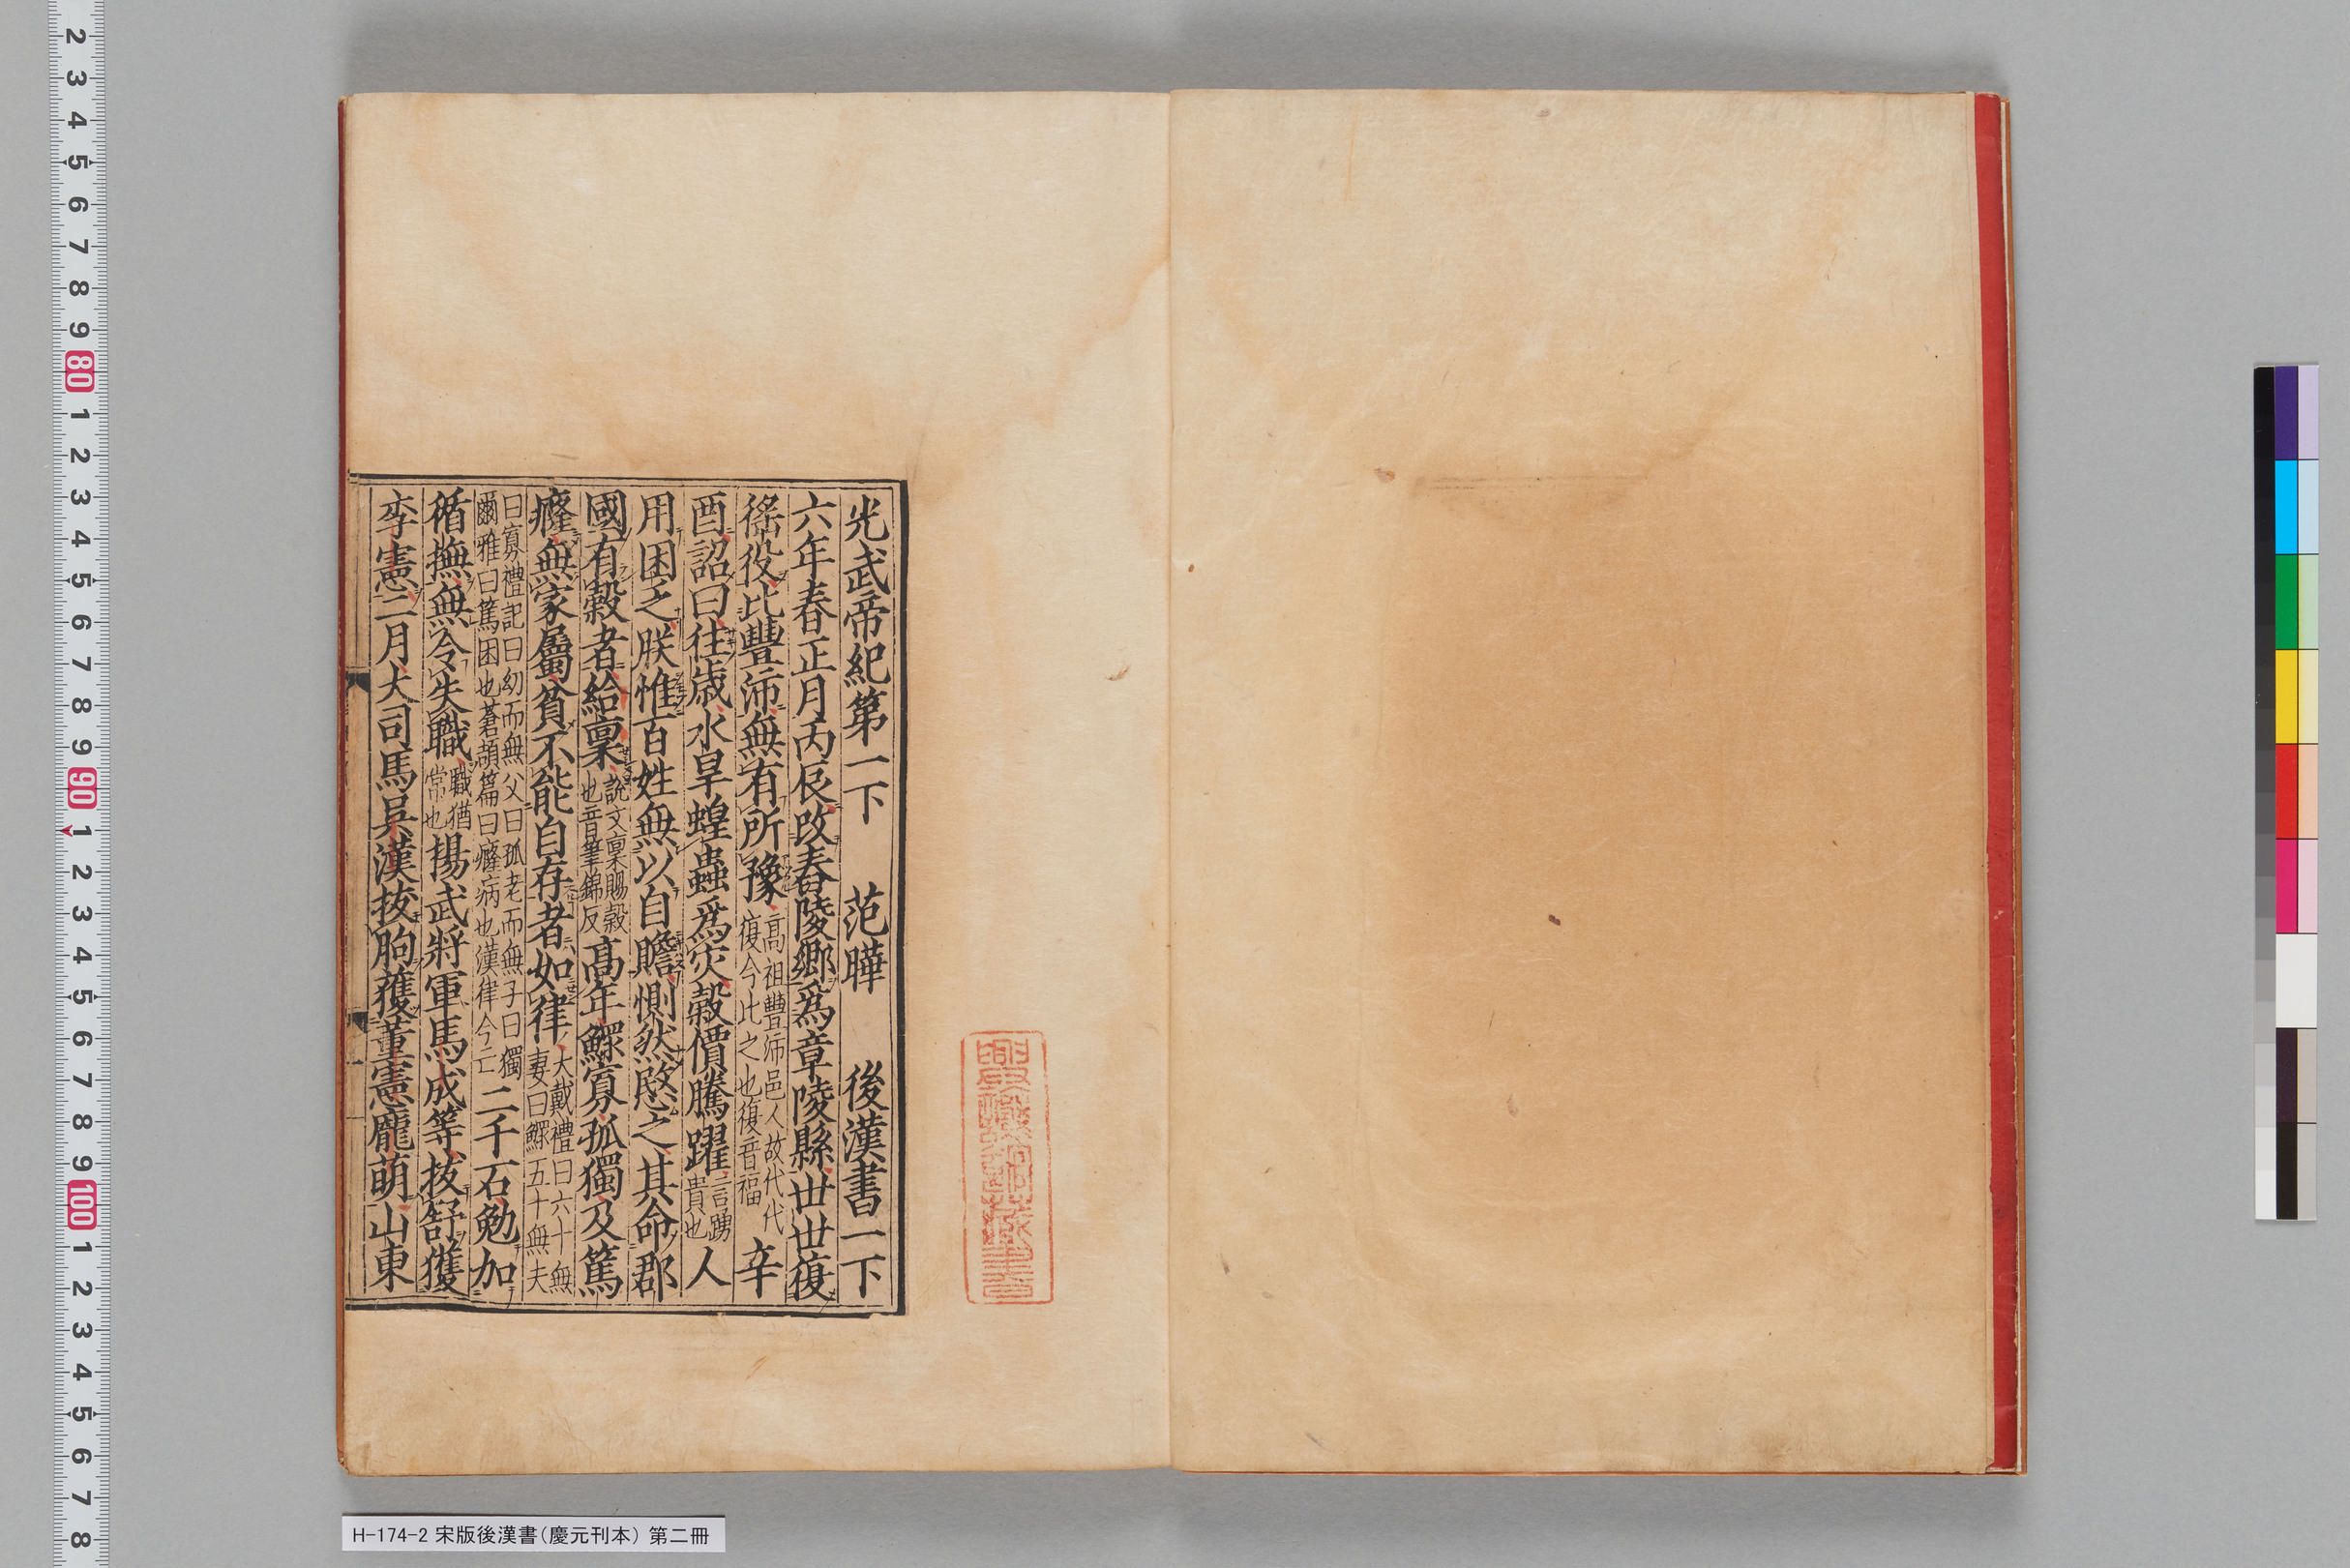 光武帝紀第一下 范曄 後漢書一下
六年春正月丙辰改舂陵鄉爲章陵縣世世復
徭役比豐沛無有所豫高祖豐沛邑人故代代復今此之也復音福辛
酉詔曰往歲水旱蝗蟲爲灾穀價騰躍言踴貴也人
用困乏朕惟百姓無以自贍惻然愍之其命郡
國有穀者給稟說文稟賜穀也音筆錦反高年鰥寡孤獨及篤
癃無家屬貧不能自存者如律大戴禮曰六十無妻曰鰥五十無夫
曰寡禮記曰幼而無父曰孤老而無子曰獨爾雅曰篤困也蒼頡篇曰癃病也漢律今亡二千石勉加
循撫無令失職職猶常也揚武將軍馬成等拔舒獲
李憲二月大司馬吳漢拔朐獲董憲龐萌山東
H-174-2 宋版後漢書(慶元刊本) 第二冊
2
3
4
5
6
7
8
9
80
1
2
3
4
5
6
7
8
9
90
1
2
3
4
5
6
7
8
9
100
1
2
3
4
5
6
7
8